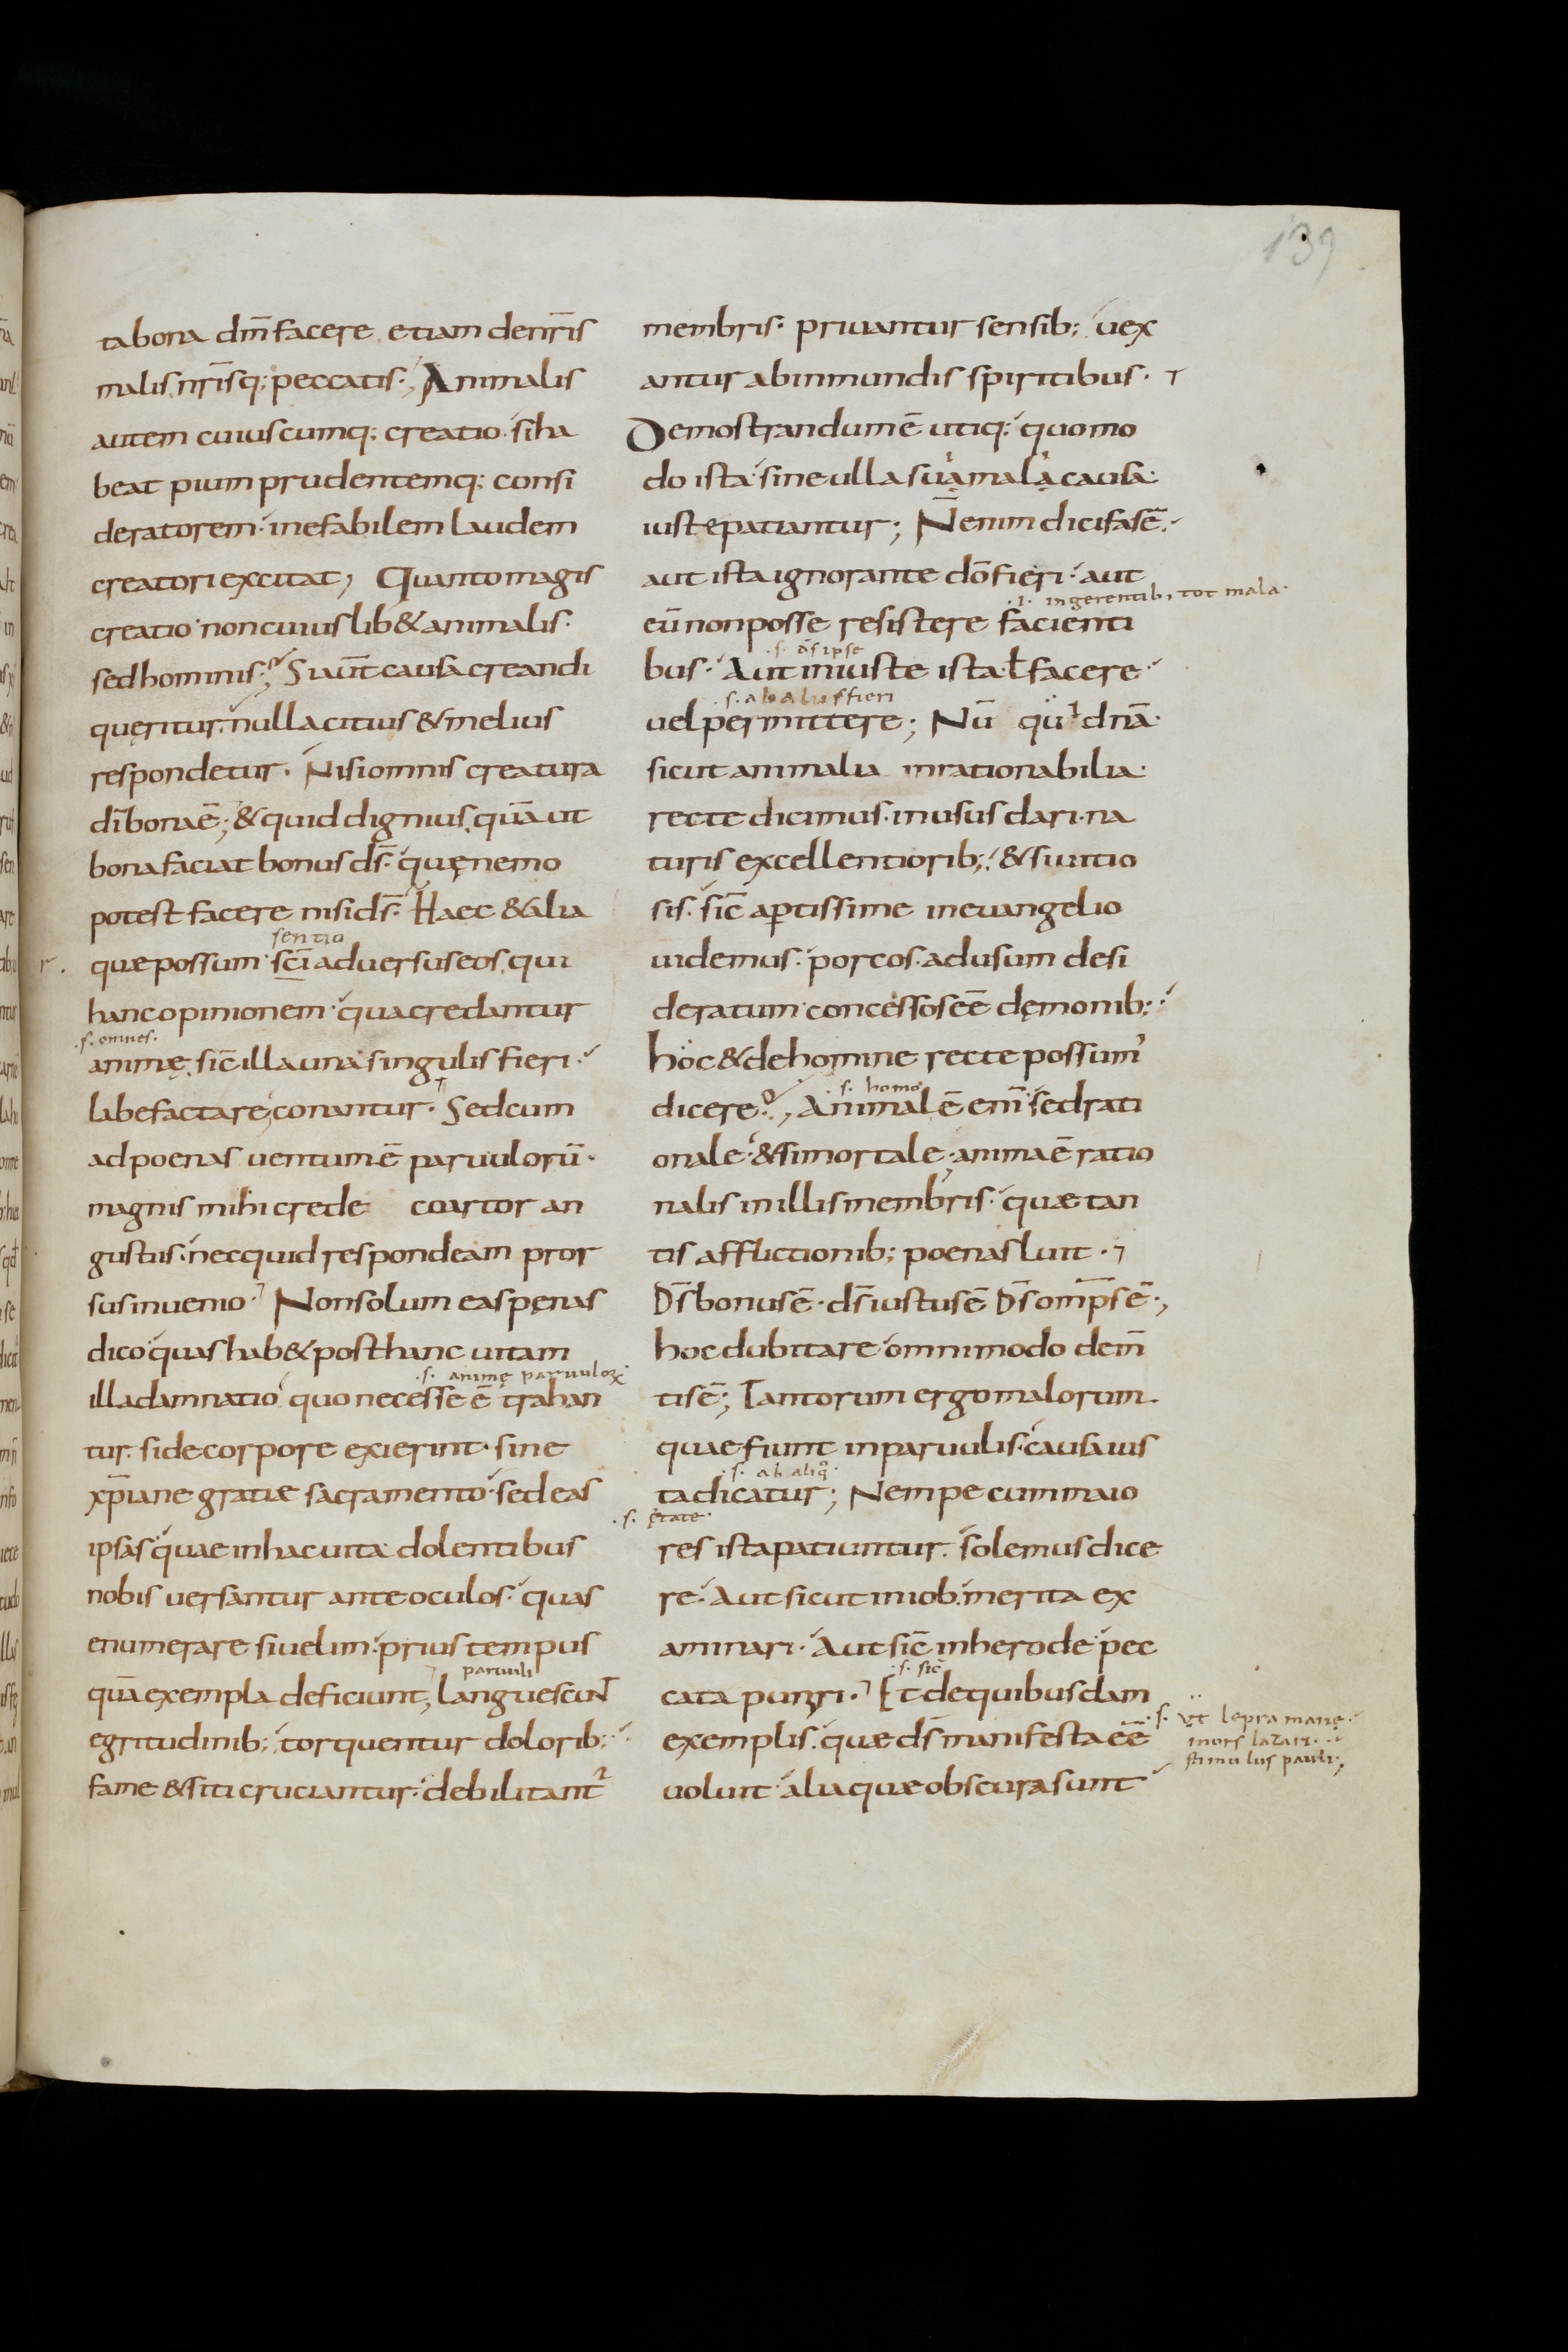 139
ta bona dm̄ facere etiam de nr̄is
malis nr̄isq; peccatis; Animalis
autem cuiuscumq; creatio si ha
beat pium prudentemq; consi
deratorem inefabilem laudem
creatori excitat; Quanto magis
creatio non cuiuslib& animalis
sed hominis; Si aut̄ causa creandi
quęritur nulla citius & melius
respondetur. Nisi omnis creatura
dī bona ē; & quid dignius quā ut
bona faciat bonus ds̄ quę nemo
potest facere nisi ds̄. Haec & alia
sentio
quæ possum sc̄i aduersus eos qui
hanc opinionem qua credantur
.s. omnes.
animę sic̄ illa una singulis fieri
labefactare conantur. Sed cum
ad poenas uentum ē paruulorū
magnis mihi crede coartor an
gustiis nec quid respondeam pror
sus inuenio. Non solum eas pęnas
dico quas hab& post hanc uitam
.s. animę paruuloꝝ
illa damnatio quo necesse ē trahan
tur. si de corpore exierint sine
xp̄iane gratiæ sacramento sed eas
ipsas quae in hac uita dolentibus
nobis uersantur ante oculos quas
enumerare si uelim prius tempus
paruuli
quā exempla deficiunt; languescunt
egritudinib; torquentur dolorib;
fame & siti cruciantur debilitant᷑
membris. priuantur sensib; uex
antur ab inmundis spiritibus.
Demostrandum ē utiq; quomo
do ista sine ulla sua mala causa
iuste patiantur; N̄ enim dici fas ē
aut ista ignorante dō fieri aut
.i. ingerentib; tot mala.
eū non posse resistere facienti
.s. ds̄ ipse
bus. Aut iniuste ista ł facere
.s. ab aliis fieri
uel permittere; Nū qđ dnā
sicut animalia inrationabilia
recte dicimus in usus dari na
turis excellentiorib; & si uitio
sis. sic̄ aptissime in euangelio
uidemus porcos ad usum desi
deratum concessos eē dęmonib;
hoc & de homine recte possum'
.s. homo
dicere; Animal ē enī sed rati
onale & si mortale anima ē ratio
nalis in illis membris quæ tan
tis afflictionib; poenas luit.
Ds̄ bonus ē. ds̄ iustus ē Ds̄ omp̄s ē.,
hoc dubitare omnimodo dem̄
tis ē; Tantorum ergo malorum
quae fiunt in paruulis causa ius
.s. ab aliq̊
ta dicatur; Nempe cum maio
.s. ętate.
res ista patiuntur. solemus dice
re. Aut sicut in iob merita ex
aminari. Aut sic̄ in herode pec
.s. sic̄
cata puniri. Et de quibusdam
exemplis quæ ds̄ manifesta eē
.s. ut lepra marię.
mors lazari.
stimulus pauli;
uoluit alia quæ obscura sunt